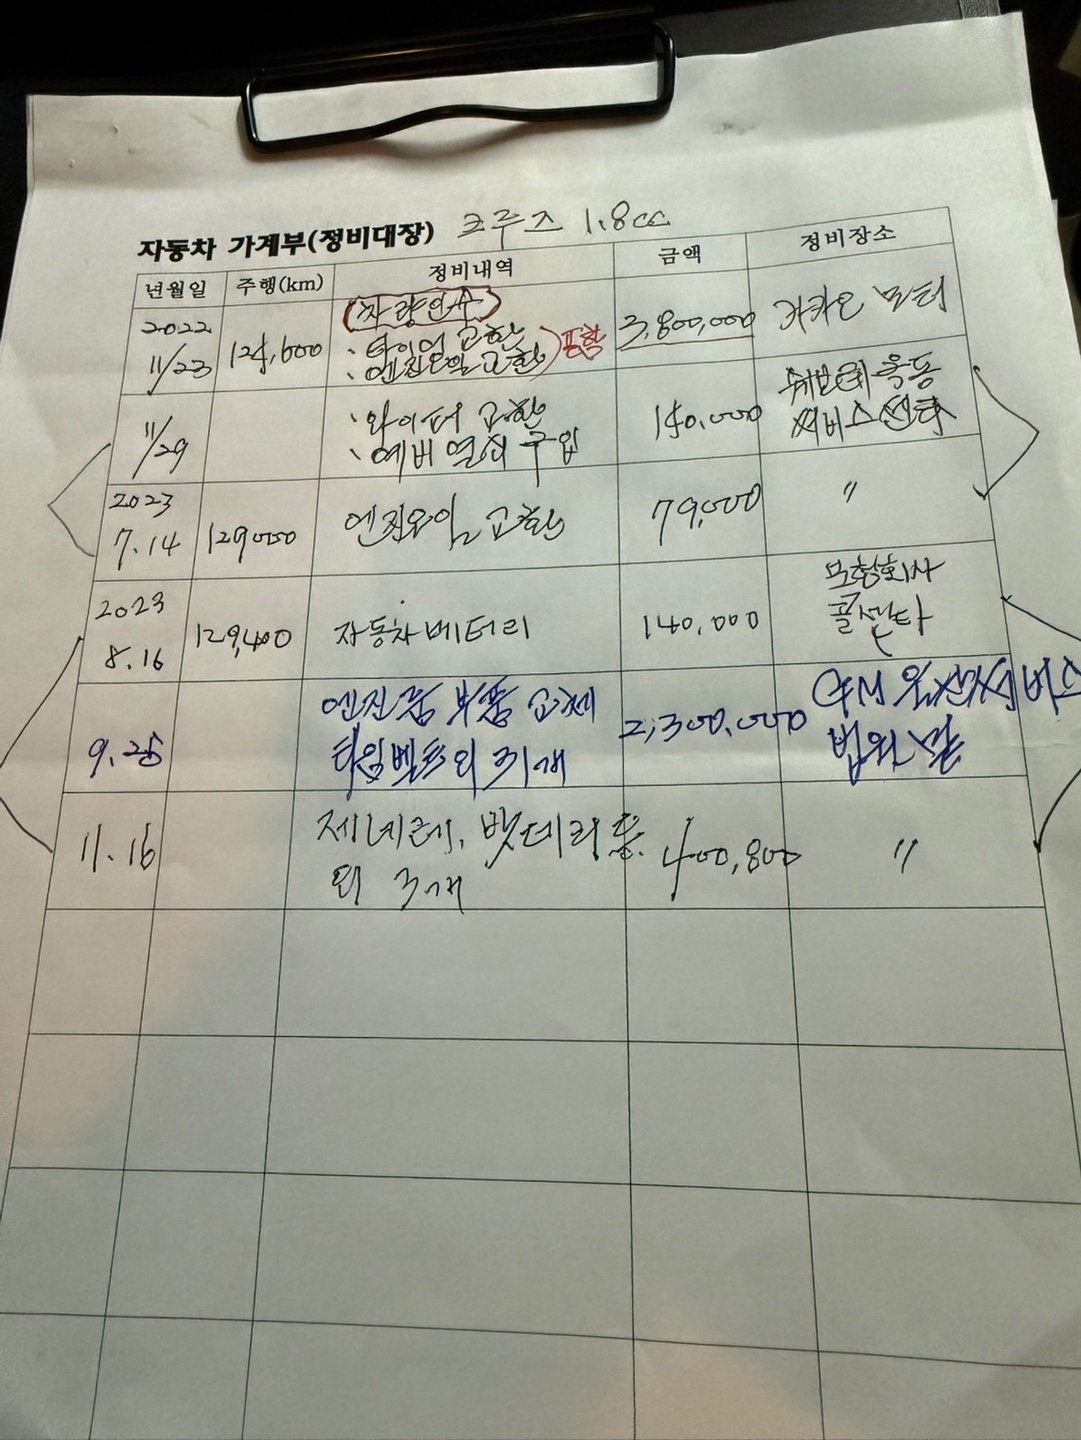 자동차 가계부(정비대장) 크루즈 1.8cc
년월일 주행(km) 정비내역 금액 정비장소
2022
11/23 124,600 (차량인수)
: 타이어 교환
: 엔진오일 교환 포함
3,800,000 카카오 모터
11/29
: 와이퍼 교환
: 예비 열쇠 구입
140,000
서비스센타
2023
7.14 129000 엔진오일 교환 79,000 "
2023
8.16 129,400 자동차 베터리 140,000
보험회사
콜센타
9.25
엔진룸 부품 교체
타임벨트외 3개
2,300,000
GM 서비스
11.16
제네레, 밧데리 등
외 3개
400,800 "